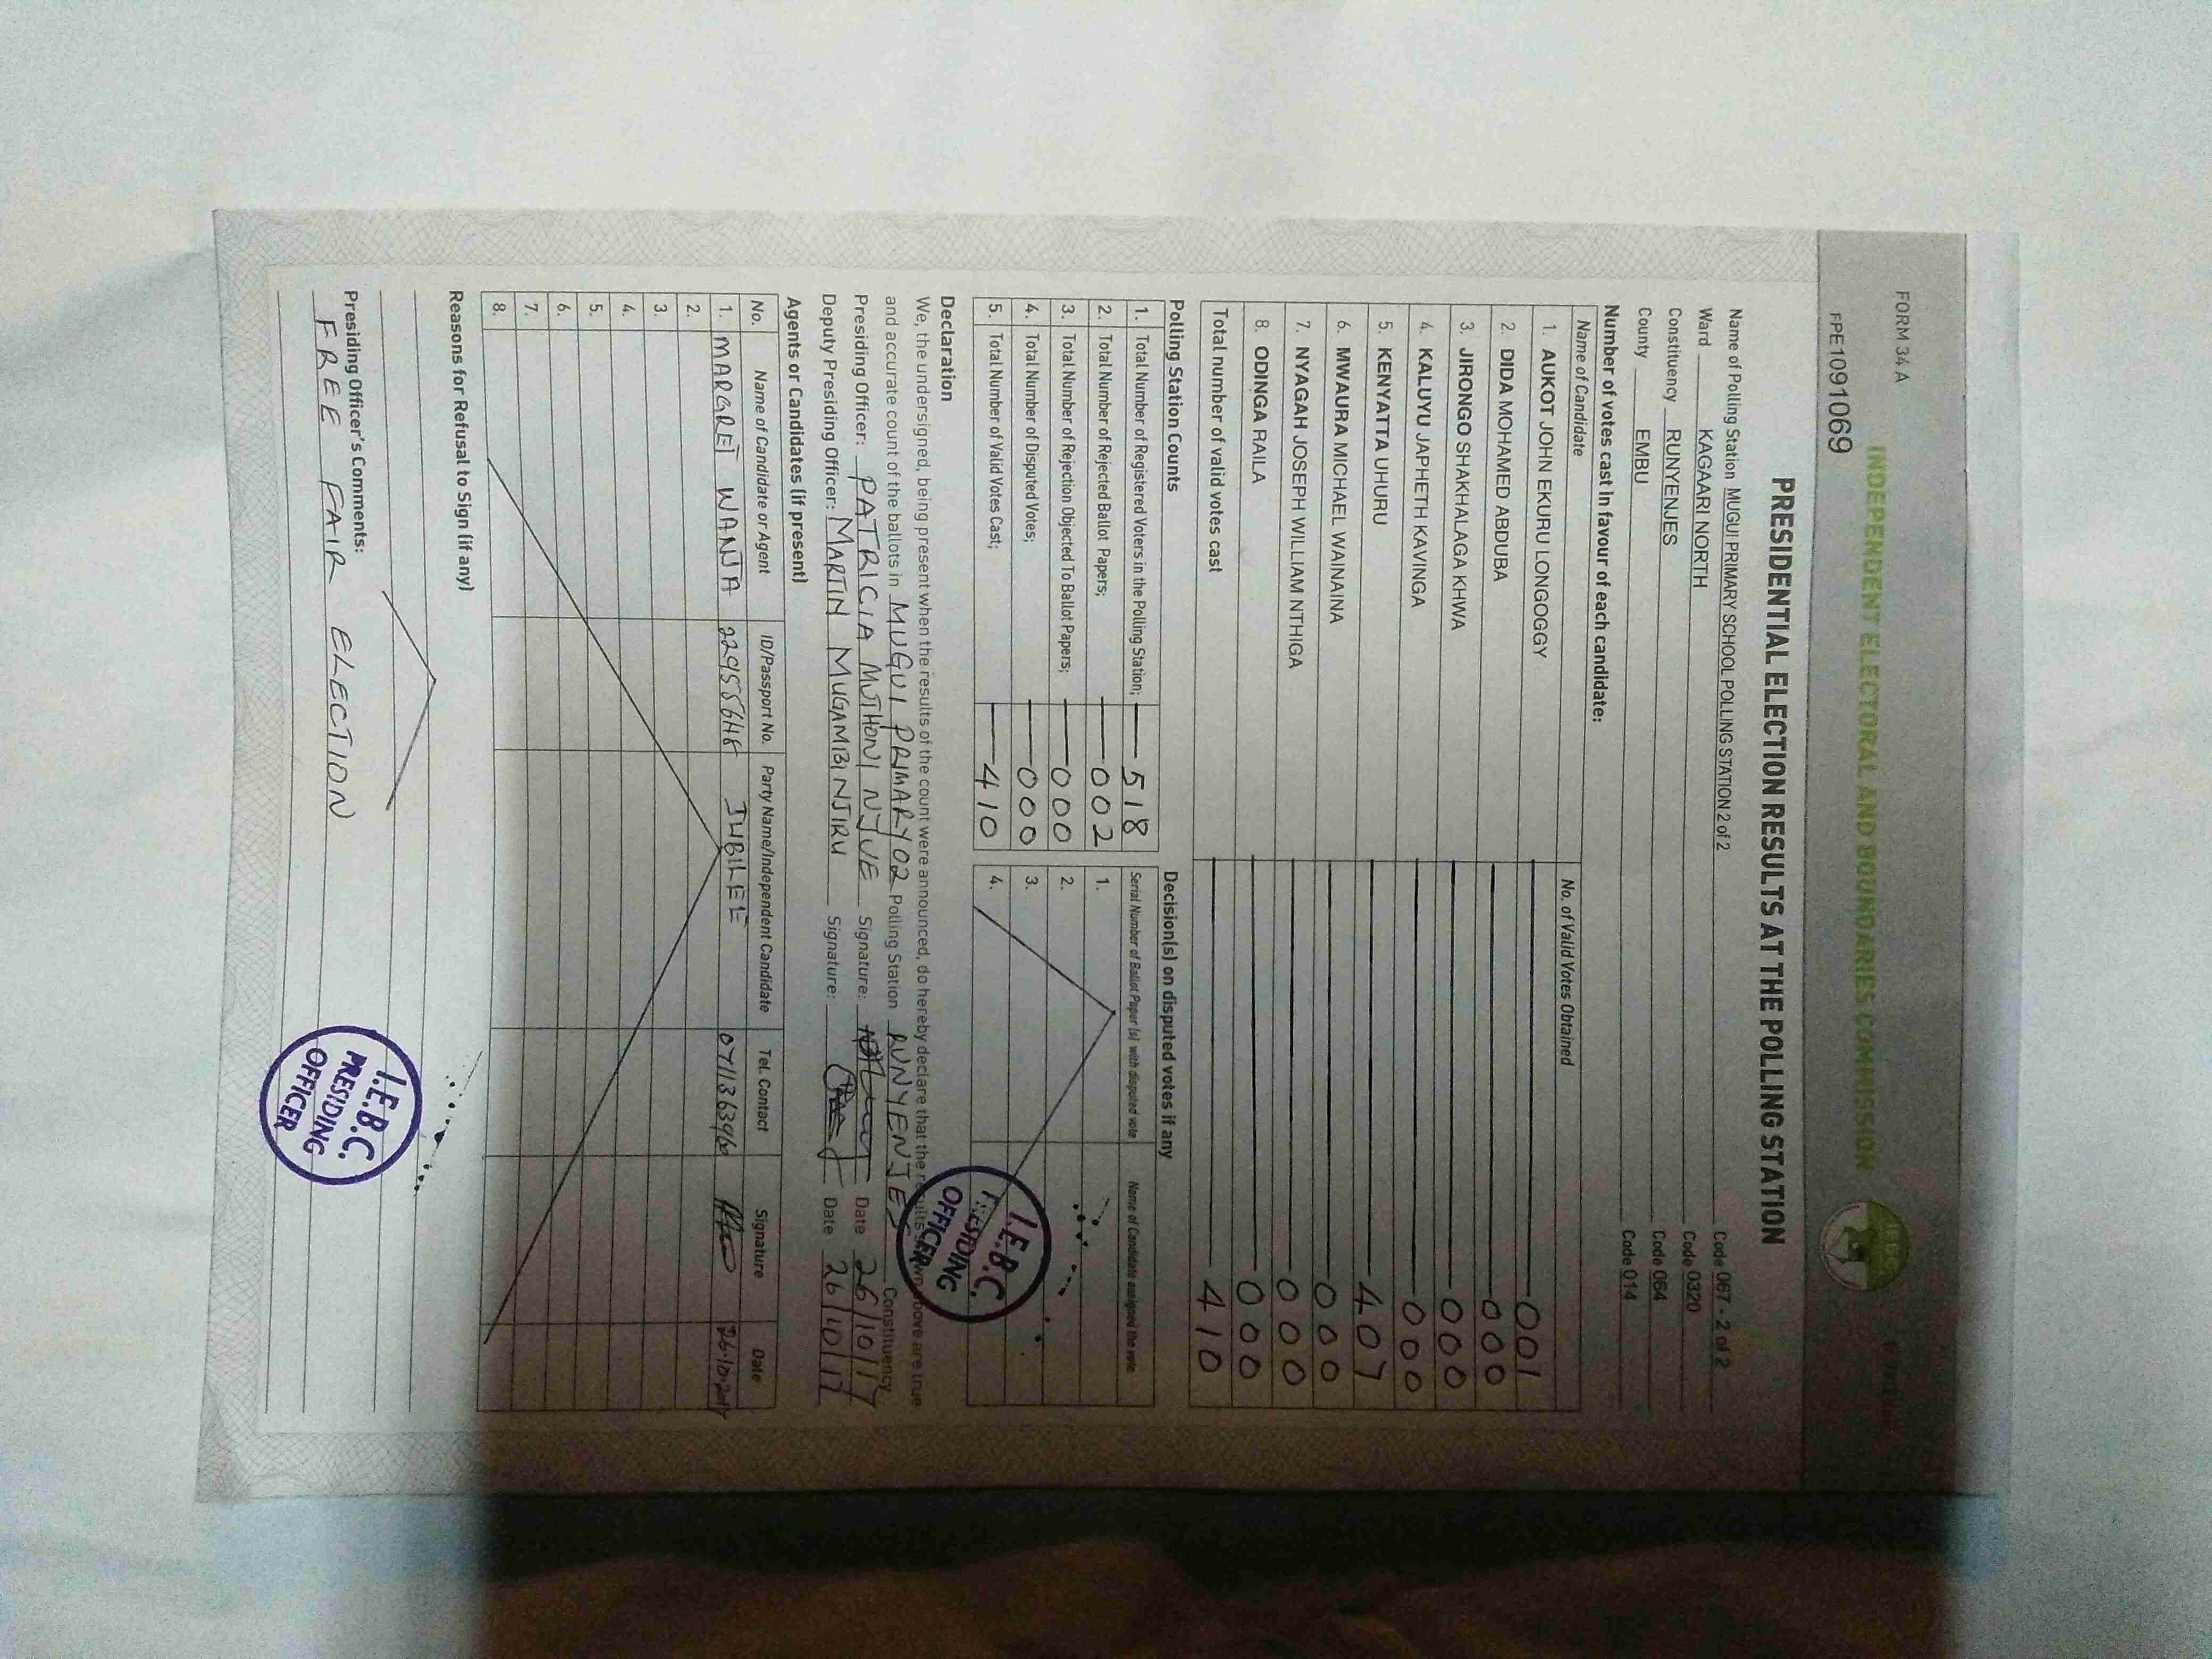 FORM 34 A
INDEPENDENT ELECTORAL AND BOUNDARIES COMMISSION
FPE1091069
PRESIDENTIAL ELECTION RESULTS AT THE POLLING STATION
Name of Polling Station MUGUI PRIMARY SCHOOL POLLING STATION 2 of 2 Code 067 - 2 of 2
Ward KAGAARI NORTH Code 0320
Constituency RUNYENJES Code 064
County EMBU Code 014
Number of votes cast in favour of each candidate:
Name of Candidate No. of Valid Votes Obtained
1. AUKOT JOHN EKURU LONGOGGY 001
2. DIDA MOHAMED ABDUBA 000
3. JIRONGO SHAKHALAGA KHWA 000
4. KALUYU JAPHETH KAVINGA 000
5. KENYATTA UHURU 407
6. MWAURA MICHAEL WAINAINA 000
7. NYAGAH JOSEPH WILLIAM NTHIGA 000
8. ODINGA RAILA 000
Total number of valid votes cast 410
Polling Station Counts
1. Total Number of Registered Voters in the Polling Station; 518
2. Total Number of Rejected Ballot Papers; 002
3. Total Number of Rejection Objected To Ballot Papers; 000
4. Total Number of Disputed Votes; 000
5. Total Number of Valid Votes Cast; 410
Decision(s) on disputed votes if any
Serial Number of Ballot Paper (s) with disputed vote Name of Candidate assigned the vote
1.
2.
3.
4.
I.E.B.C.
PRESIDING
OFFICER
Declaration
We, the undersigned, being present when the results of the count were announced, do hereby declare that the results shown above are true
and accurate count of the ballots in MUGUI PRIMARY 02 Polling Station RUNYENJES Constituency
Presiding Officer: PATRICIA MUTHONI NJUE Signature: Date 26/10/17
Deputy Presiding Officer: MARTIN MUGAMBI NJIRU Signature: Date 26/10/17
Agents or Candidates (if present)
No. Name of Candidate or Agent ID/Passport No. Party Name/Independent Candidate Tel. Contact Signature Date
1. MARGRET WANJA JUBILEE 26.10.2017
2.
3
4.
5.
6.
7.
8.
Reasons for Refusal to Sign (if any)
Presiding Officer's Comments:
FREE FAIR ELECTION
I.E.B.C.
PRESIDING
OFFICER